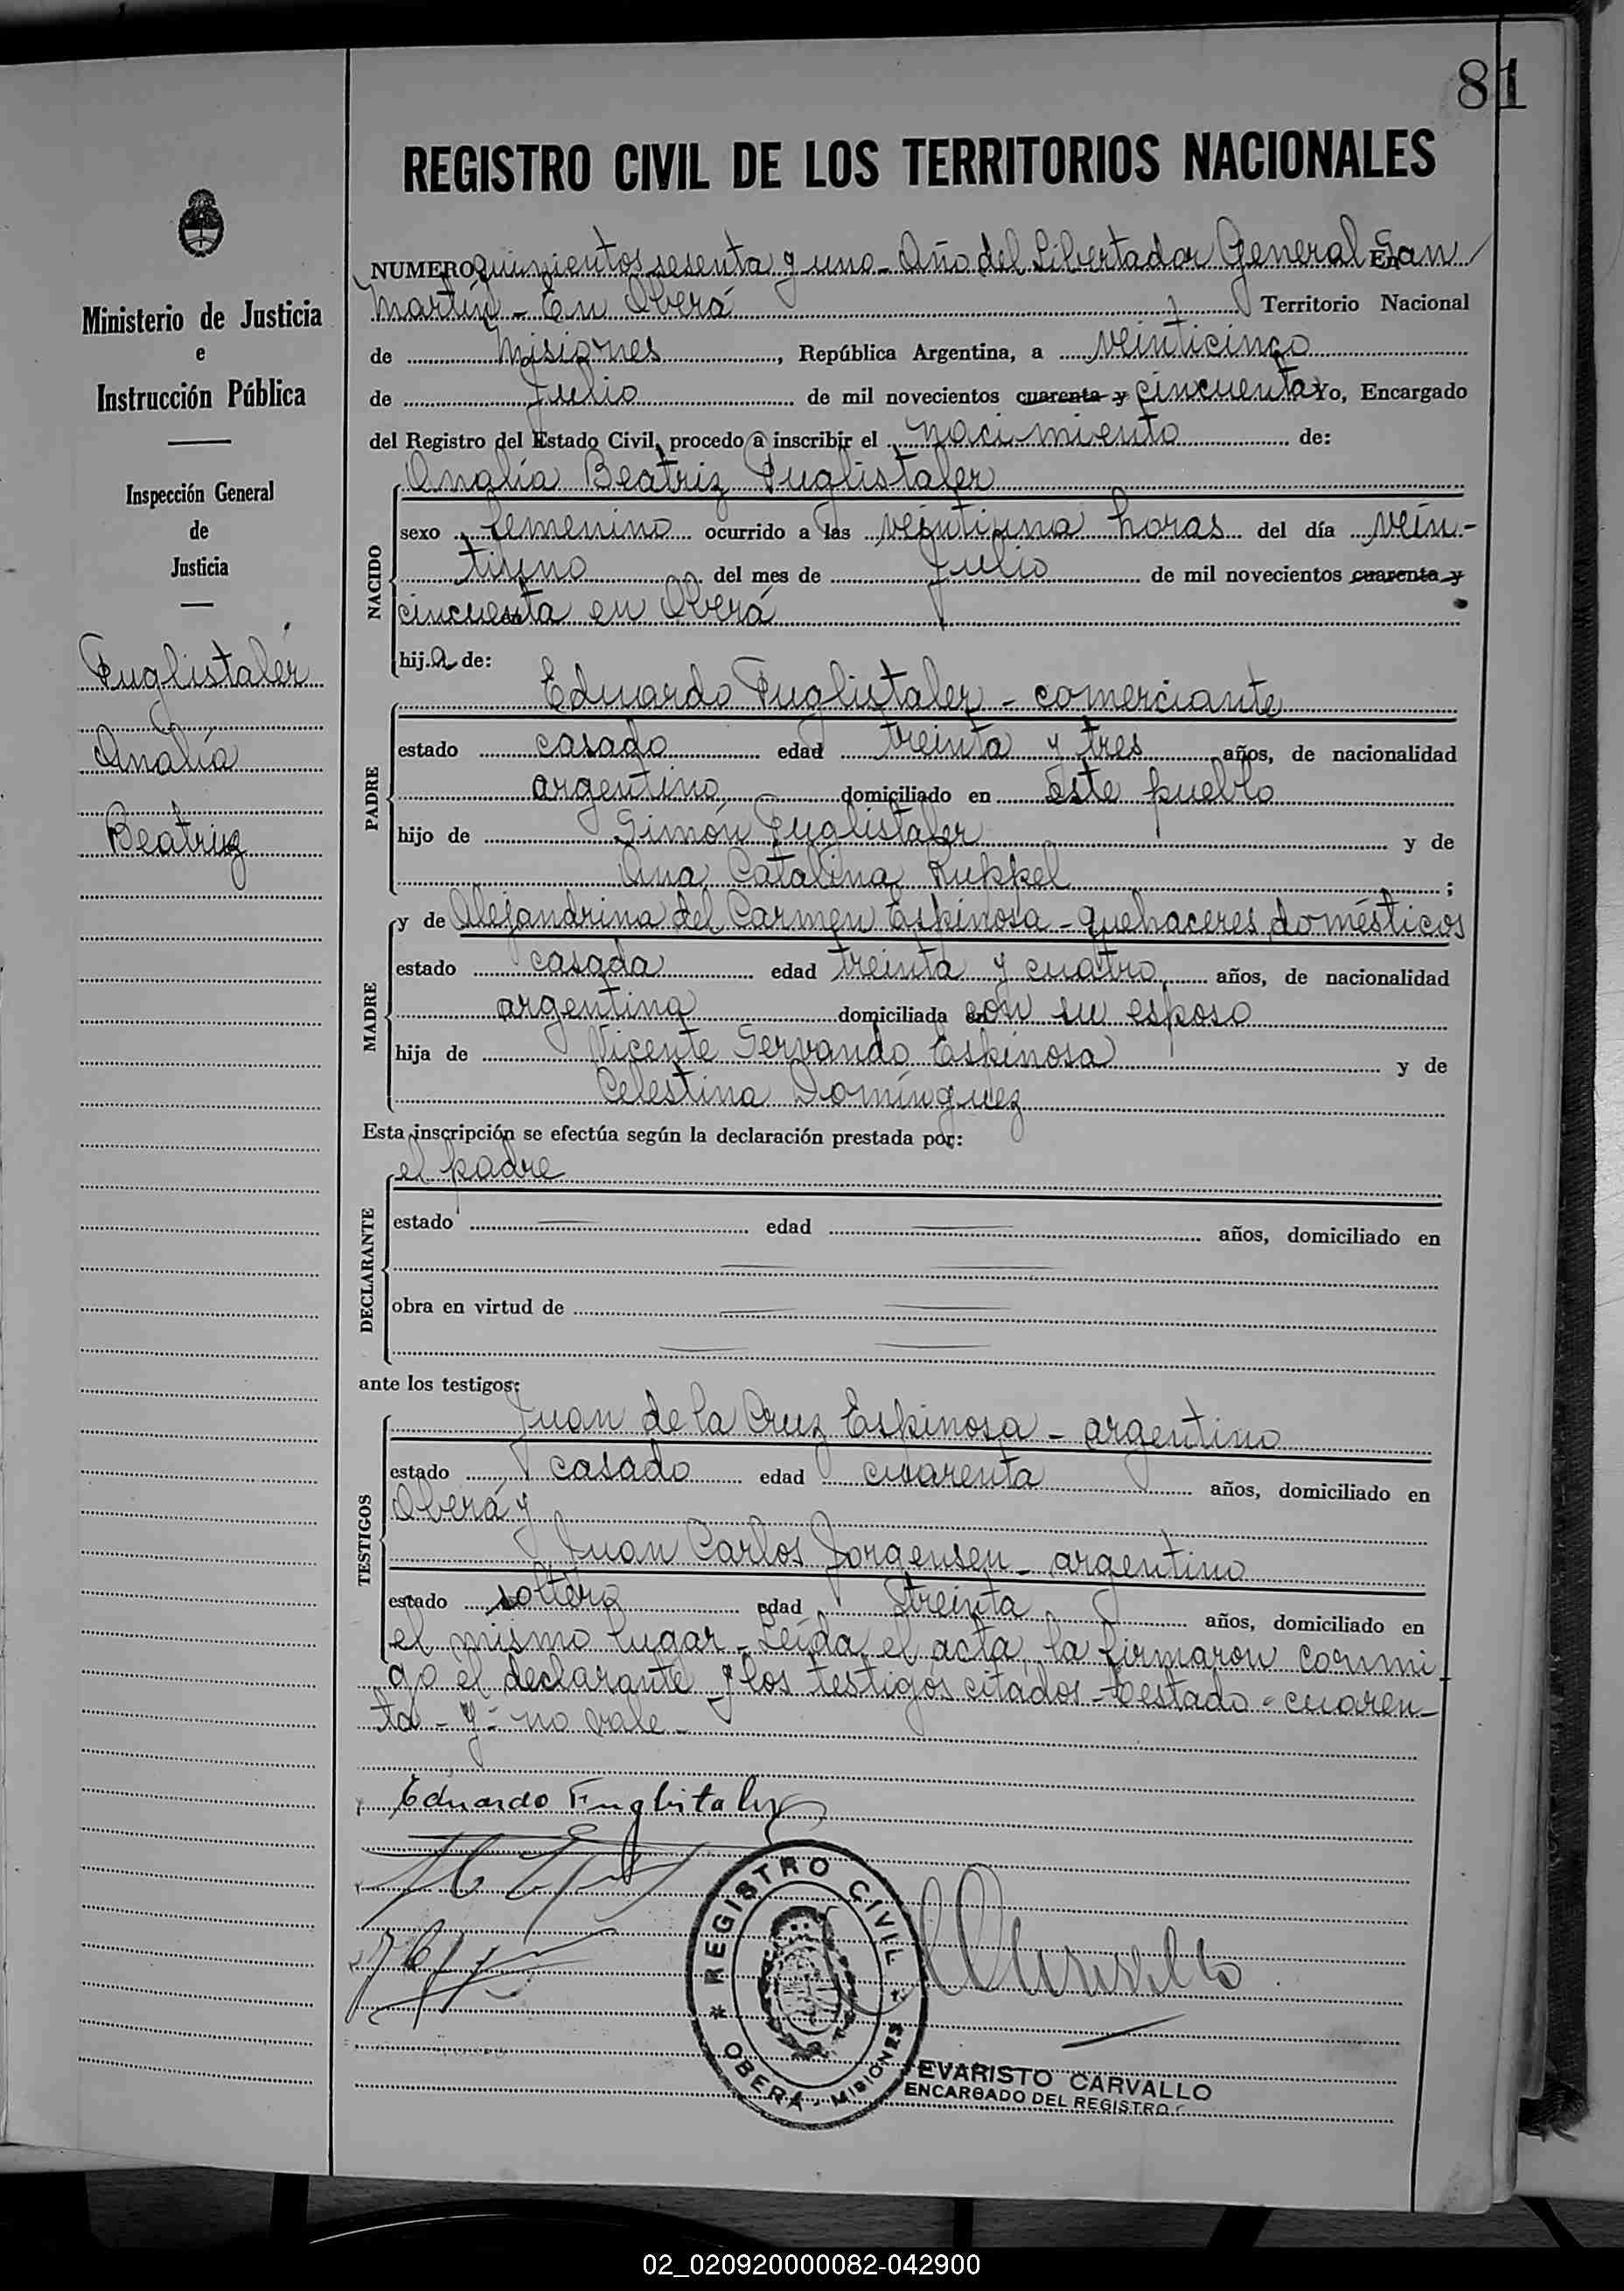 81
REGISTRO CIVIL DE LOS TERRITORIOS NACIONALES
Ministerio de Justicia
e
Instrucción Pública
Inspección General
de
Justicia
Fuglistaler
Analía
Beatriz
NUMERO quinientos sesenta y uno - Año del Libertador General En San
Martín - En Oberá Territorio Nacional
de Misiones, República Argentina, a veinticinco
de Julio de mil novecientos cuarenta y cincuenta Yo, Encargado
del Registro del Estado Civil, procedo a inscribir el nacimiento de:
NACIDO
Analía Beatriz Fuglistaler
sexo femenino ocurrido a las veintiuna horas del día vein-
tiuno del mes de Julio de mil novecientos cuarenta y
cincuenta en Oberá
hij.a de:
PADRE
Eduardo Fuglistaler - comerciante
estado casado edad treinta y tres años, de nacionalidad
argentino domiciliado en este pueblo
hijo de Simón Fuglistaler y de
Ana Catalina Ruppel ;
MADRE
y de Alejandrina del Carmen Espinosa - quehaceres domésticos
estado casada edad treinta y cuatro años, de nacionalidad
argentina domiciliada con su esposo
hija de Vicente Servando Espinosa y de
Celestina Domínguez
Esta inscripción se efectúa según la declaración prestada por:
DECLARANTE
el padre
estado edad años, domiciliado en
obra en virtud de
ante los testigos:
TESTIGOS
Juan de la Cruz Espinosa - argentino
estado casado edad cuarenta años, domiciliado en
Oberá y
Juan Carlos Jorgensen - argentino
estado soltero edad treinta años, domiciliado en
el mismo lugar - Leída el acta, la firmaron conmi-
go el declarante y los testigos citados - Testado - cuaren-
ta - y - no vale -
Eduardo Fuglistaler
REGISTRO CIVIL
OBERÁ - MISIONES
EVARISTO CARVALLO
ENCARGADO DEL REGISTRO C
02_020920000082-042900